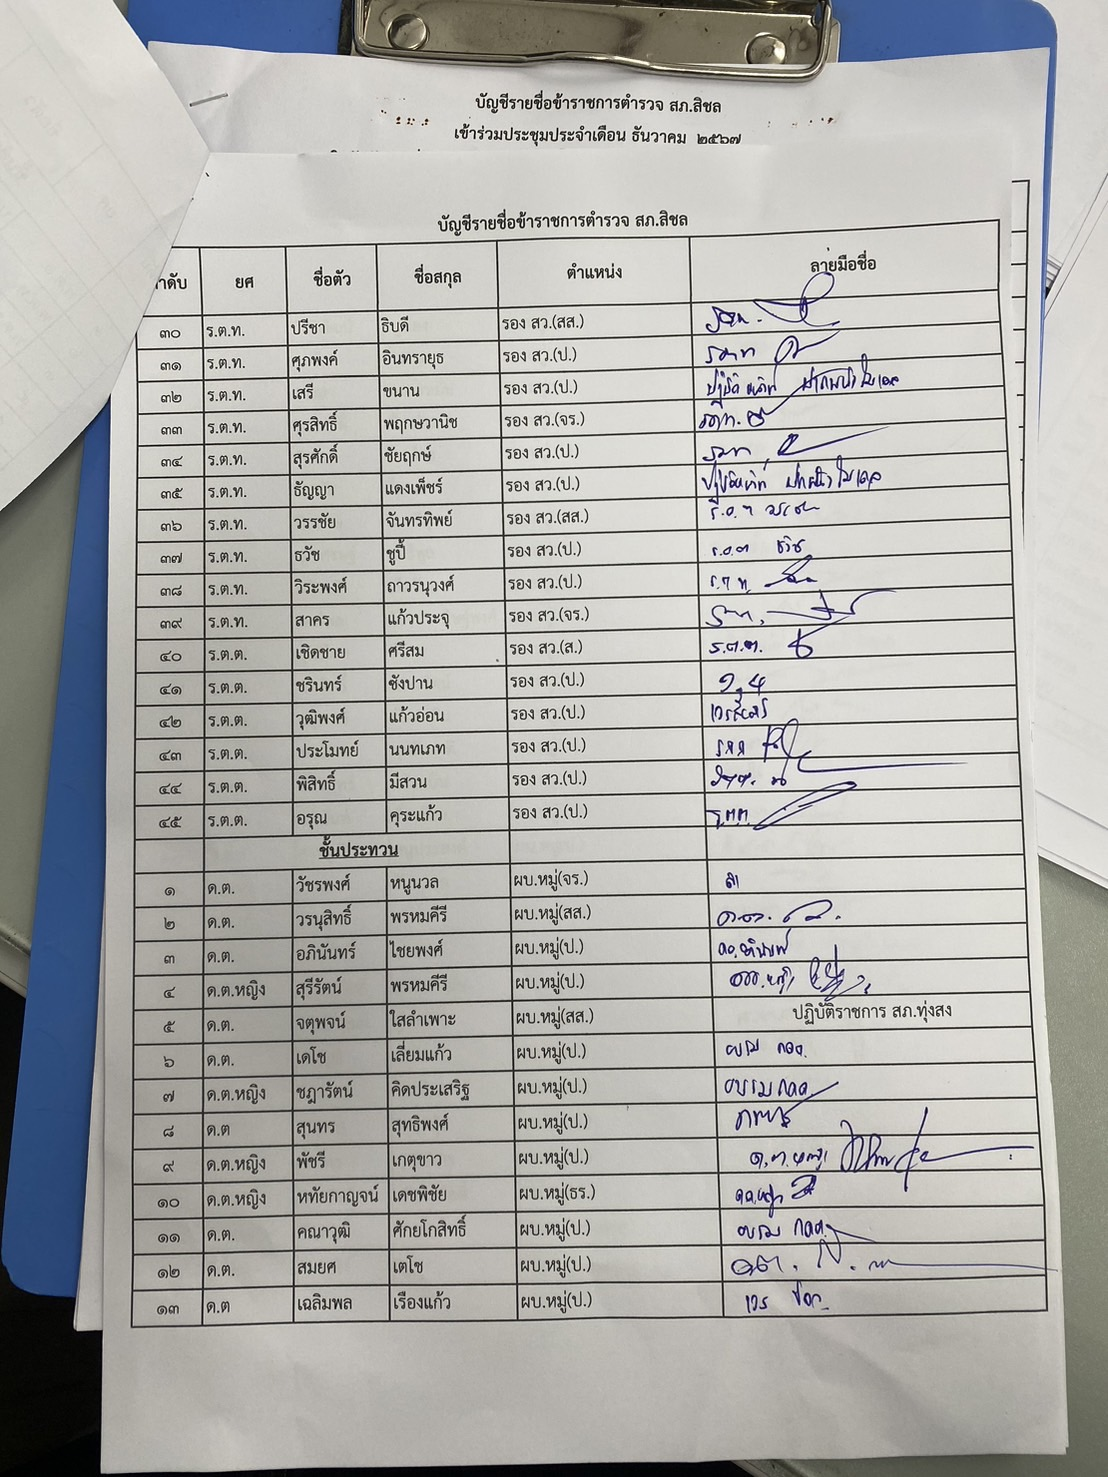 บัญชีรายชื่อข้าราชการตำรวจ สภ.สิชล
เข้าร่วมประชุมประจำเดือน ธันวาคม ๒๕๖๗
บัญชีรายชื่อข้าราชการตำรวจ สภ.สิชล
ยศ ชื่อตัว ชื่อสกุล ตำแหน่ง ลายมือชื่อ
๓๐ ร.ต.ท. ปรีชา ธิบดี รอง สว.(สส.)
๓๑ ร.ต.ท. ศุภพงศ์ อินทรายุธ รอง สว.(ป.)
๓๒ ร.ต.ท. เสรี ขนาน รอง สว.(ป.)
๓๓ ร.ต.ท. ศุรสิทธิ์ พฤกษวานิช รอง สว.(จร.)
๓๔ ร.ต.ท. สุรศักดิ์ ชัยฤกษ์ รอง สว.(ป.)
๓๕ ร.ต.ท. ธัญญา แดงเพ็ชร์ รอง สว.(ป.)
๓๖ ร.ต.ท. วรรชัย จันทรทิพย์ รอง สว.(สส.)
๓๗ ร.ต.ท. ธวัช ชูปี้ รอง สว.(ป.) ธวัช
๓๘ ร.ต.ท. วิระพงศ์ ถาวรนุวงศ์ รอง สว.(ป.)
๓๙ ร.ต.ท. สาคร แก้วประจุ รอง สว.(จร.)
๔๐ ร.ต.ต. เชิดชาย ศรีสม รอง สว.(ส.) ร.ต.ต.
๔๑ ร.ต.ต. ชรินทร์ ชังปาน รอง สว.(ป.)
๔๒ ร.ต.ต. วุฒิพงศ์ แก้วอ่อน รอง สว.(ป.)
๔๓ ร.ต.ต. ประโมทย์ นนทเภท รอง สว.(ป.)
๔๔ ร.ต.ต. พิสิทธิ์ มีสวน รอง สว.(ป.)
๔๕ ร.ต.ต. อรุณ คุระแก้ว รอง สว.(ป.) ร.ต.ต.
ชั้นประทวน
๑ ด.ต. วัชรพงศ์ หนูนวล ผบ.หมู่(จร.) ลา
๒ ด.ต. วรนุสิทธิ์ พรหมคีรี ผบ.หมู่(สส.)
๓ ด.ต. อภินันทร์ ไชยพงศ์ ผบ.หมู่(ป.)
๔ ด.ต.หญิง สุรีรัตน์ พรหมคีรี ผบ.หมู่(ป.)
๕ ด.ต. จตุพจน์ ใสลำเพาะ ผบ.หมู่(สส.) ปฏิบัติราชการ สภ.ทุ่งสง
๖ ด.ต. เดโช เลี่ยมแก้ว ผบ.หมู่(ป.) อบรม
๗ ด.ต.หญิง ชฎารัตน์ คิดประเสริฐ ผบ.หมู่(ป.) อบรม
๘ ด.ต สุนทร สุทธิพงศ์ ผบ.หมู่(ป.)
๙ ด.ต.หญิง พัชรี เกตุขาว ผบ.หมู่(ป.) ด.ต.หญิง
๑๐ ด.ต.หญิง หทัยกาญจน์ เดชพิชัย ผบ.หมู่(ธร.)
๑๑ ด.ต. คณาวุฒิ ศักยโกสิทธิ์ ผบ.หมู่(ป.) อบรม
๑๒ ด.ต. สมยศ เตโช ผบ.หมู่(ป.)
๑๓ ด.ต เฉลิมพล เรืองแก้ว ผบ.หมู่(ป.) เวร